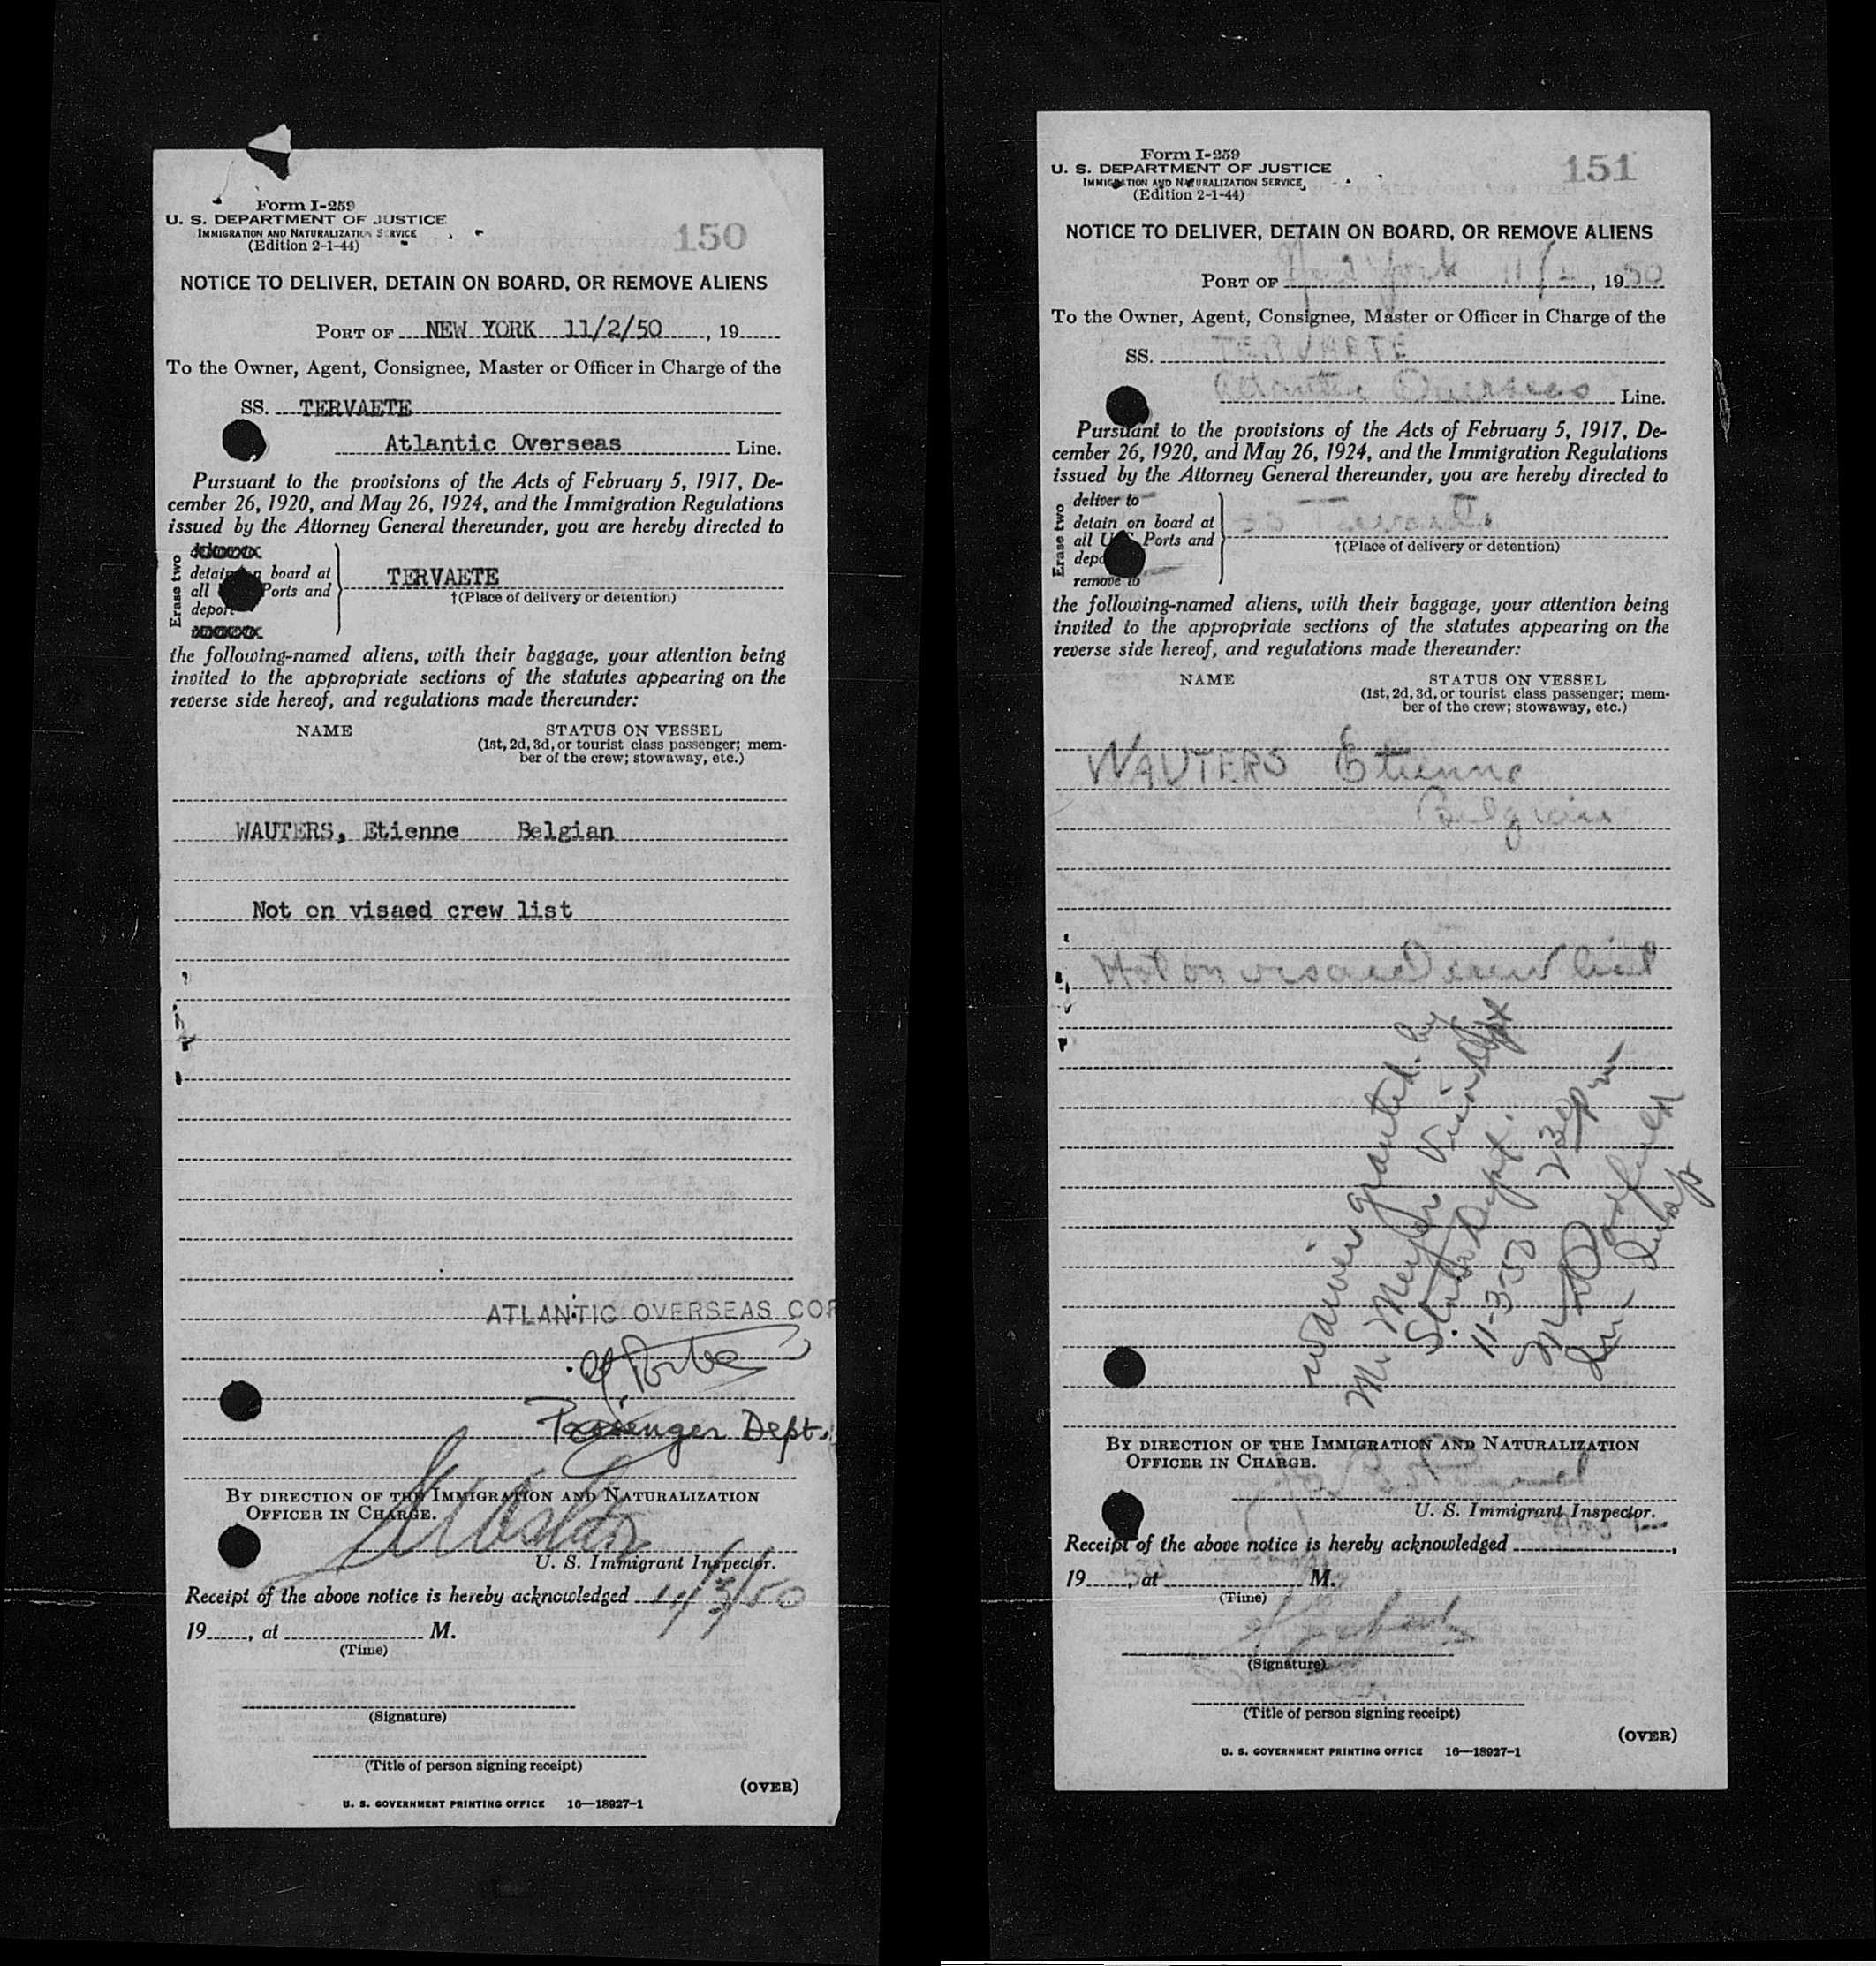 Form I-259
U. S. DEPARTMENT OF JUSTICE
IMMIGRATION AND NATURALIZATION SERVICE
(Edition 2-1-44)
150
NOTICE TO DELIVER, DETAIN ON BOARD, OR REMOVE ALIENS
PORT OF NEW YORK 11/2/50, 19
To the Owner, Agent, Consignee, Master or Officer in Charge of the
SS. TERVAETE
Atlantic Overseas Line.
Pursuant to the provisions of the Acts of February 5, 1917, De-
cember 26, 1920, and May 26, 1924, and the Immigration Regulations
issued by the Attorney General thereunder, you are hereby directed to
Erase two
detain on board at
all Ports and
deport
TERVAETE
†(Place of delivery or detention)
the following-named aliens, with their baggage, your attention being
invited to the appropriate sections of the statutes appearing on the
reverse side hereof, and regulations made thereunder:
NAME
STATUS ON VESSEL
(1st, 2d, 3d, or tourist class passenger; mem-
ber of the crew; stowaway, etc.)
WAUTERS, Etienne Belgian
Not on visaed crew list
ATLANTIC OVERSEAS COR
Passenger Dept.
BY DIRECTION OF THE IMMIGRATION AND NATURALIZATION
OFFICER IN CHARGE.
U. S. Immigrant Inspector.
Receipt of the above notice is hereby acknowledged 11/3/50
19, at M.
(Time)
(Signature)
(Title of person signing receipt)
(OVER)
U. S. GOVERNMENT PRINTING OFFICE 16—18927-1
Form I-259
U. S. DEPARTMENT OF JUSTICE
IMMIGRATION AND NATURALIZATION SERVICE
(Edition 2-1-44)
151
NOTICE TO DELIVER, DETAIN ON BOARD, OR REMOVE ALIENS
PORT OF New York 11/2, 1950
To the Owner, Agent, Consignee, Master or Officer in Charge of the
SS. TERVAETE
Atlantic Overseas Line.
Pursuant to the provisions of the Acts of February 5, 1917, De-
cember 26, 1920, and May 26, 1924, and the Immigration Regulations
issued by the Attorney General thereunder, you are hereby directed to
Erase two
deliver to
detain on board at
all U.S. Ports and
deport
remove to
SS Tervaete
†(Place of delivery or detention)
the following-named aliens, with their baggage, your attention being
invited to the appropriate sections of the statutes appearing on the
reverse side hereof, and regulations made thereunder:
NAME
STATUS ON VESSEL
(1st, 2d, 3d, or tourist class passenger; mem-
ber of the crew; stowaway, etc.)
WAUTERS Etienne
Belgian
Not on visaed crew list
Waiver granted by
Mr Meyer
State Dept.
11-3-50
BY DIRECTION OF THE IMMIGRATION AND NATURALIZATION
OFFICER IN CHARGE.
U. S. Immigrant Inspector.
Receipt of the above notice is hereby acknowledged
19 50, at M.
(Time)
(Signature)
(Title of person signing receipt)
(OVER)
U. S. GOVERNMENT PRINTING OFFICE 16—18927-1